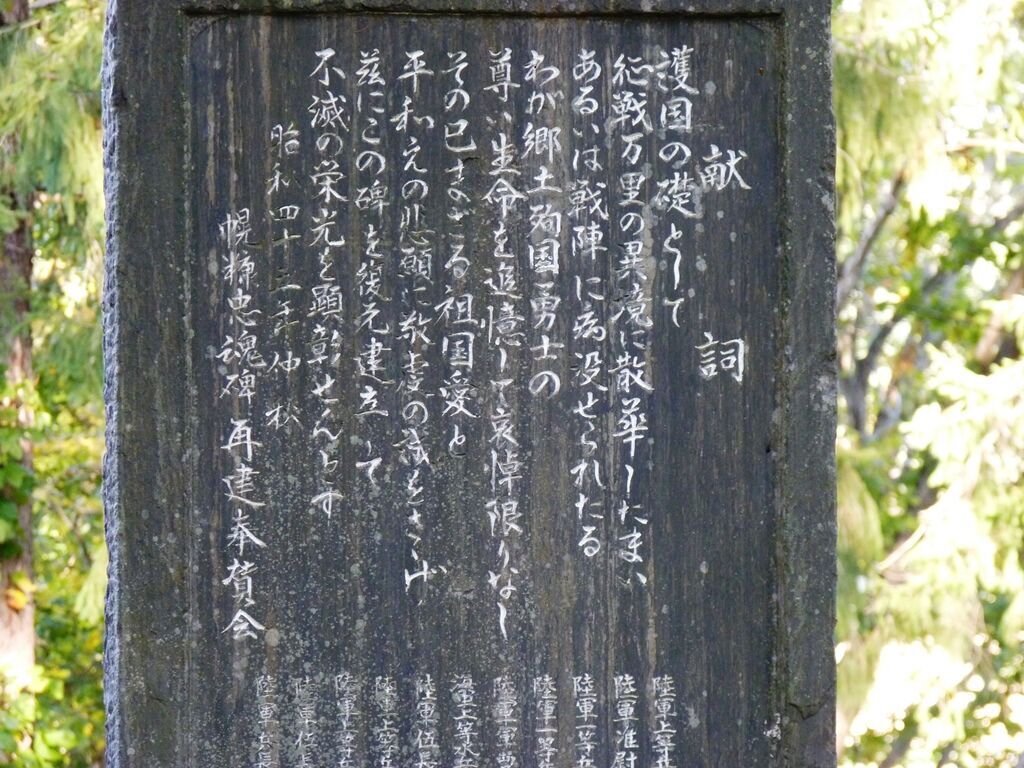 献詞
護国の礎として
征戦万里の異境に散華したまい
あるいは戦陣に病没せられたる
わが郷土殉国勇士の
尊い生命を追憶して哀悼限りなし
その已まざる祖国愛と
平和えの悲願に敬虔の誠をささげ
茲にこの碑を復元建立して
不滅の栄光を顕彰せんとす
昭和四十三年仲秋
幌糠忠魂碑再建奉賛会
陸軍上等兵
陸軍准尉
陸軍一等兵
陸軍一等兵
陸軍軍曹
海軍上等水兵
陸軍伍長
陸軍上等兵
陸軍上等兵
陸軍伍長
陸軍兵長